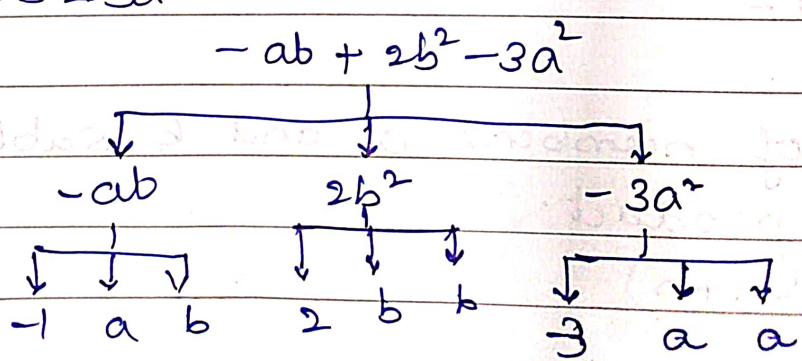 - ab + 2b² - 3a²
- ab 2b² - 3a²
-1 a b 2 b b -3 a a